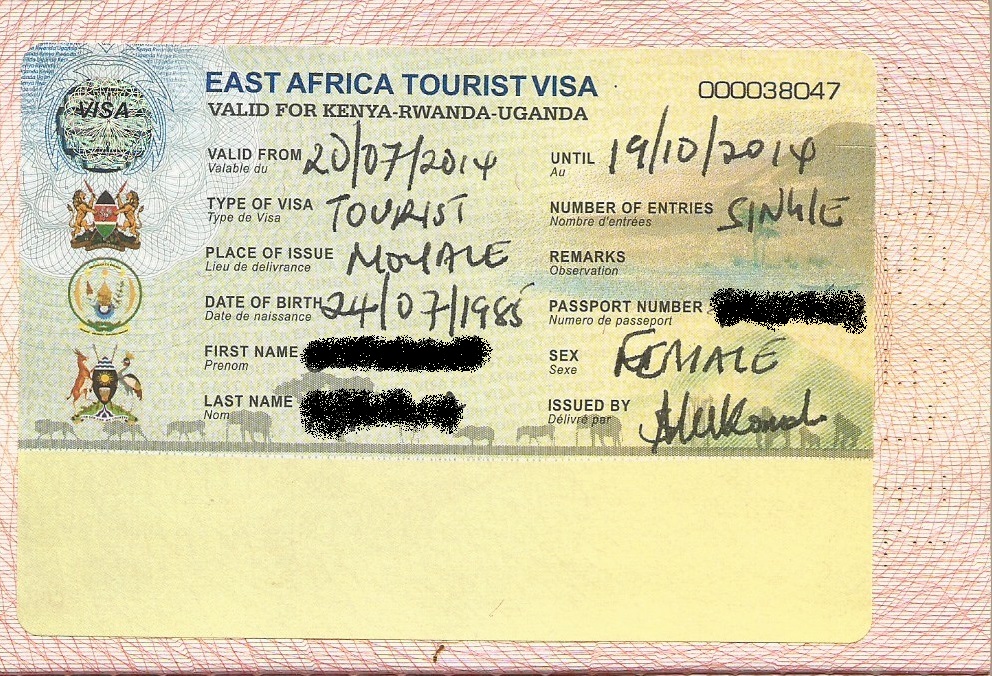 VISA
EAST AFRICA TOURIST VISA
000038047
VALID FOR KENYA-RWANDA-UGANDA
VALID FROM 20/07/2014
Valable du
UNTIL 19/10/2014
Au
TYPE OF VISA TOURIST
Type de Visa
NUMBER OF ENTRIES SINGLE
Nombre d'entrées
PLACE OF ISSUE MOYALE
Lieu de delivrance
REMARKS
Observation
DATE OF BIRTH 24/07/1985
Date de naissance
PASSPORT NUMBER
Numero de passeport
FIRST NAME
Prenom
SEX FEMALE
Sexe
LAST NAME
Nom
ISSUED BY
Délivré par